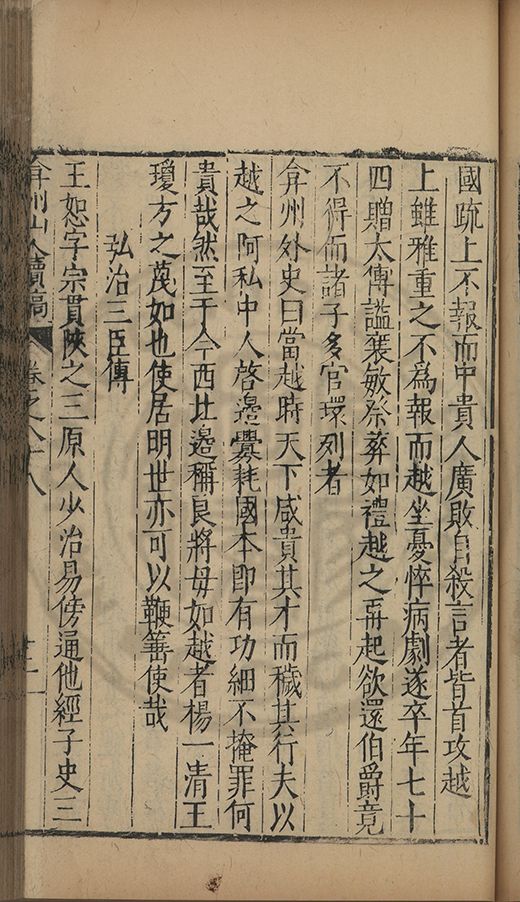 國疏上不報而中貴人廣敗自殺言者皆首攻越
上雖雅重之不爲報而越坐憂悴病劇遂卒年七十
四贈太傅謚襄敏祭葬如禮越之再起欲還伯爵竟
不得而諸子多官環列者
弇州外史曰當越時天下咸貴其才而穢其行夫以
越之阿私中人啓邊釁耗國本即有功細不掩罪何
貴哉然至于今西北邊稱良將毋如越者楊一清王
瓊方之蔑如也使居明世亦可以鞭箠使哉
弘治三臣傳
王恕字宗貫陝之三原人少治易傍通他經子史三
弇州山人續稿 卷之八十八